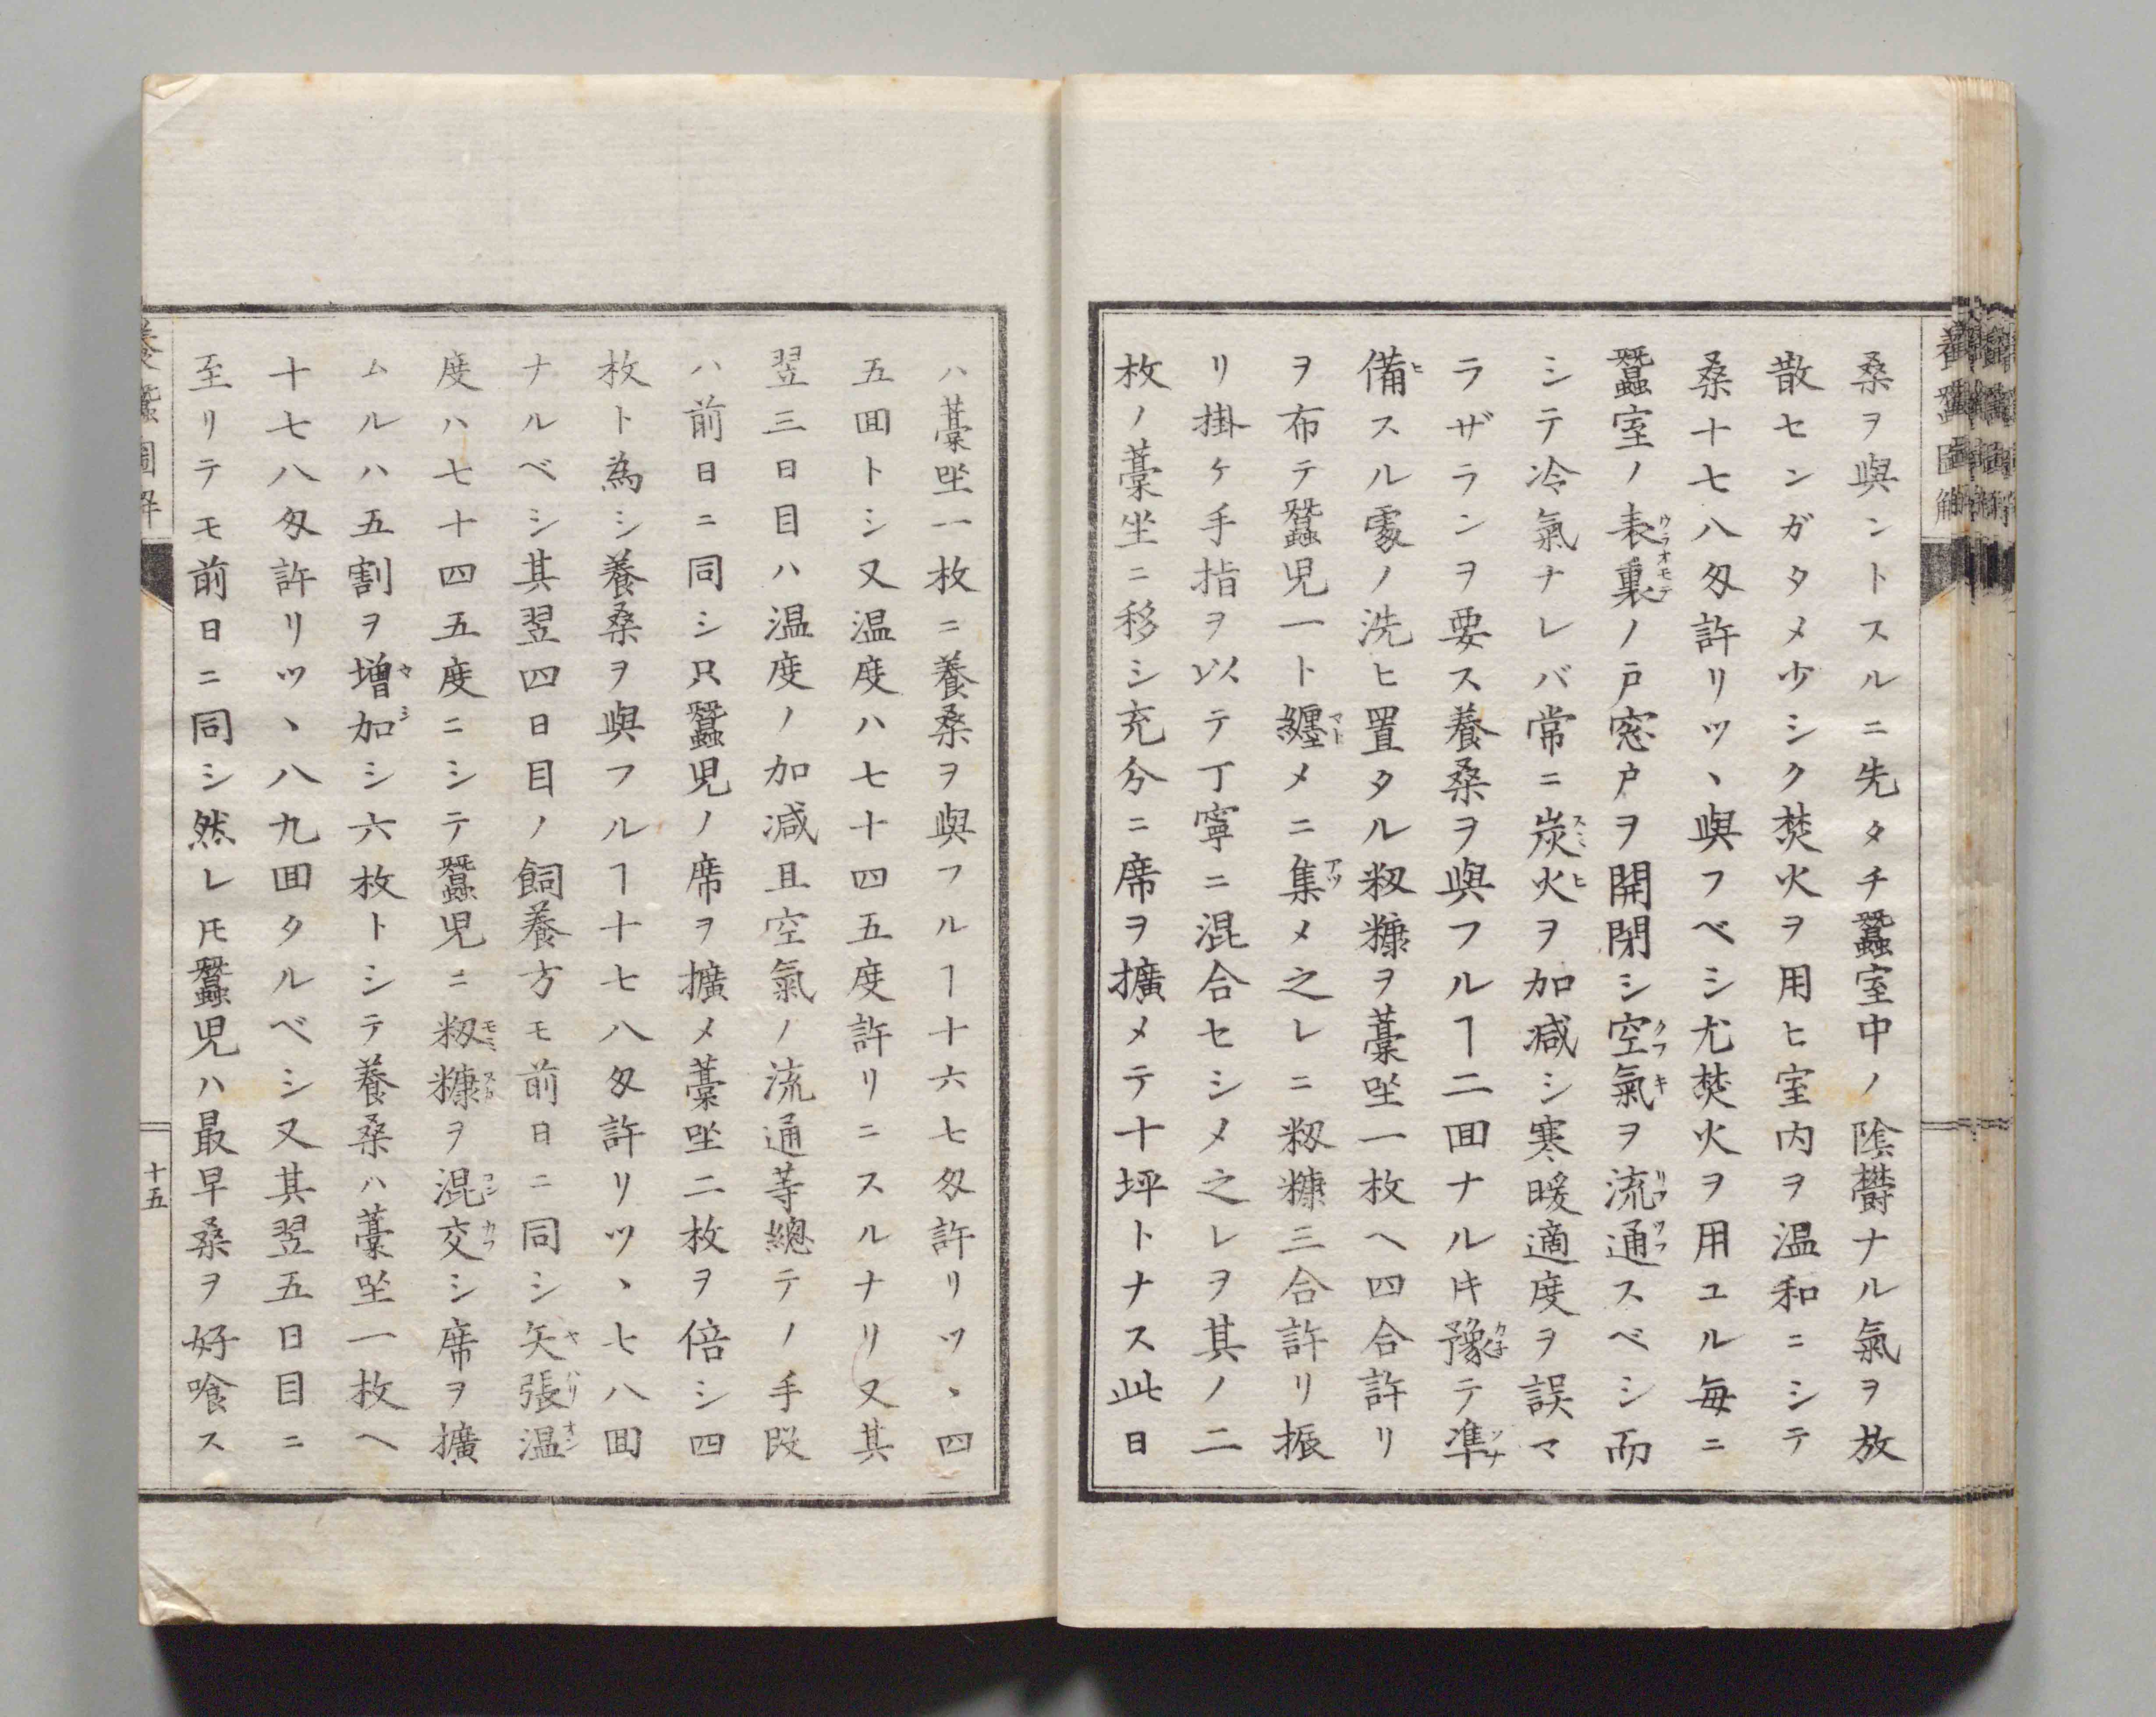 養蠶圖解
桑ヲ與ントスルニ先タチ蠶室中ノ陰欝ナル氣ヲ放
散センガタメ少シク焚火ヲ用ヒ室内ヲ温和ニシテ
桑十七八匁許リツヽ與フベシ尤焚火ヲ用ユル毎ニ
蠶室ノ表裏ノ戸窓戸ヲ開閉シ空氣ヲ流通スベシ而
シテ冷氣ナレバ常ニ炭火ヲ加减シ寒暖適度ヲ誤マ
ラザランヲ要ス養桑ヲ與フルヿ二回ナルキ豫テ凖
備スル處ノ洗ヒ置タル籾糠ヲ藁坐一枚ヘ四合許リ
ヲ布テ蠶児一ト纏メニ集メ之レニ籾糠三合許リ振
リ掛ケ手指ヲ以テ丁寧ニ混合セシメ之レヲ其ノ二
枚ノ藁坐ニ移シ充分ニ席ヲ擴メテ十坪トナス此日
ハ藁坐一枚ニ養桑ヲ與フルヿ十六七匁許リツヽ四
五回トシ又温度ハ七十四五度許リニスルナリ又其
翌三日目ハ温度ノ加减且空氣ノ流通等總テノ手段
ハ前日ニ同シ只蠶児ノ席ヲ擴メ藁坐二枚ヲ倍シ四
枚ト為シ養桑ヲ與フルヿ十七八匁許リツヽ七八回
ナルベシ其翌四日目ノ飼養方モ前日ニ同シ矢張温
度ハ七十四五度ニシテ蠶児ニ籾糠ヲ混交シ席ヲ擴
ムルハ五割ヲ増加シ六枚トシテ養桑ハ藁坐一枚ヘ
十七八匁許リツヽ八九回タルベシ又其翌五日目ニ
至リテモ前日ニ同シ然レ𪜈蠶児ハ最早桑ヲ好喰ス
養蠶圖解
十五